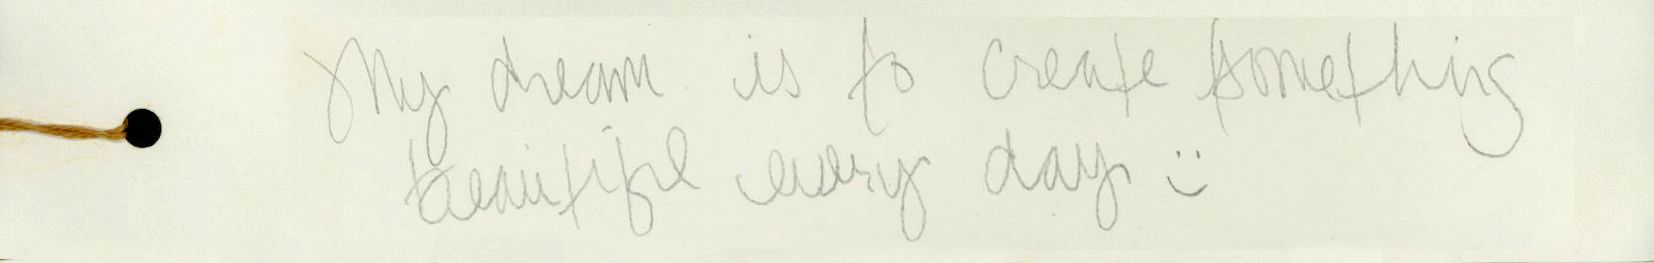 My dream is to create something
beautiful every day :)